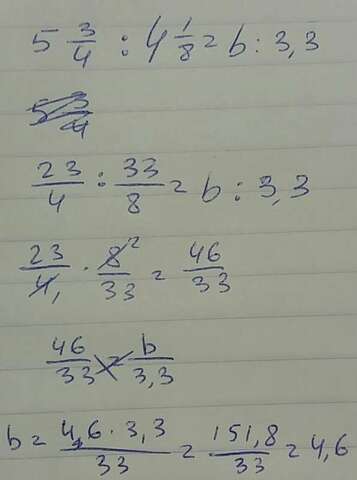 5 3/4 : 4 1/8 = b : 3,3
5 3/4
23/4 : 33/8 = b : 3,3
23/4 1 · 8 2/33 = 46/33
46/33 = b/3,3
b = 4,6 · 3,3/33 = 151,8/33 = 4,6